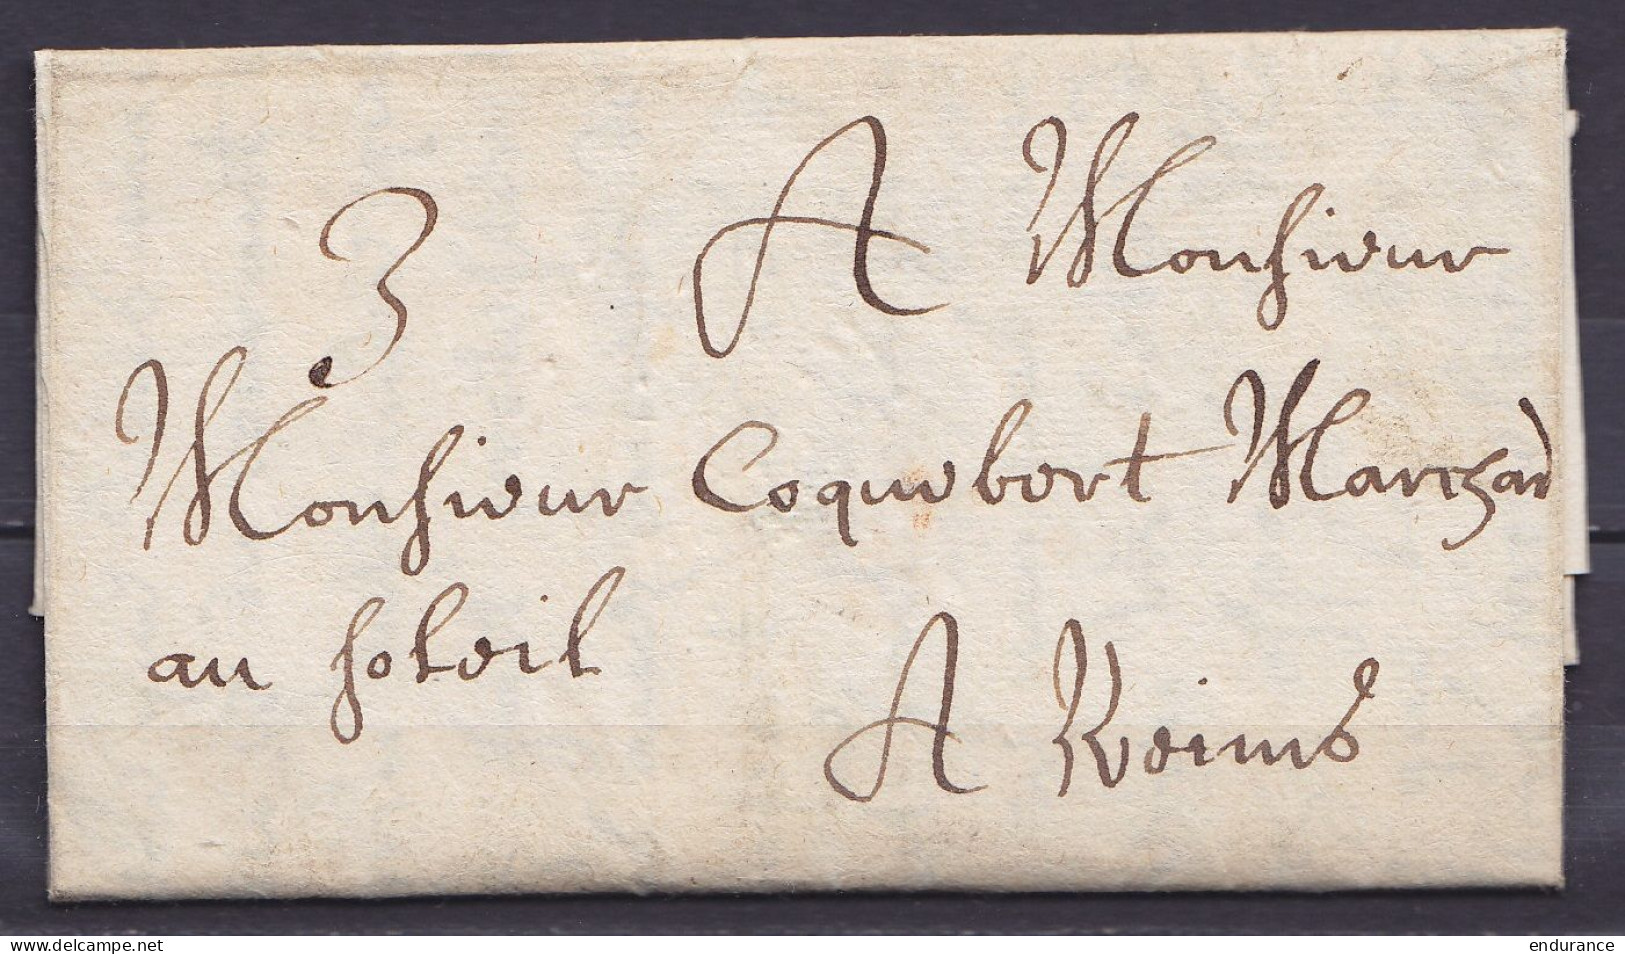 3
A Monsieur
Monsieur Coquebert Marchad
au soleil
A Reims
www.delcampe.net
endurance